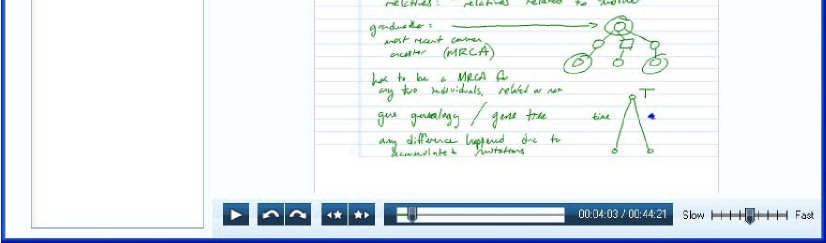 relatives: relatives related to
graduate:
most recent common
ancestor (MRCA)
has to be a MRCA for
any two individuals, related or not
T
gene genealogy / gene tree
time
any difference happened due to
accumulated mutations
00:04:03 / 00:44:21 Slow Fast